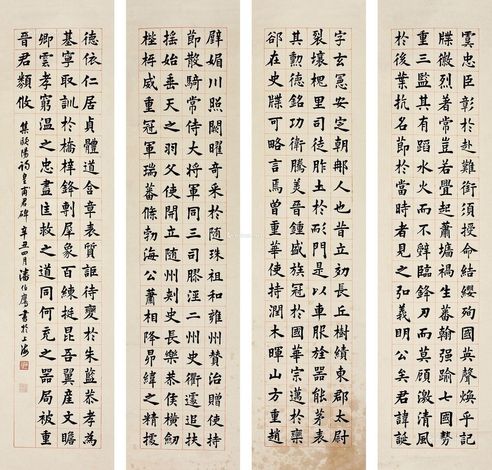 虞忠臣彰於赴難銜須授命結纓殉國英聲煥乎記
牒徽烈著豈若釁起蕭墻禍生蕃翰強踰七國勢
重三監其有蹈水火而不辤臨鋒刃而莫顧激清風
於後葉抗名節於當時者見之弘義明公矣君諱誕
字玄憲安定朝郍人也昔立効長丘樹績東郡太尉
裂壤槐里司徒胙土於耏門是以車服旌器能茅表
其勳德銘功衛騰美晉鍾盛族冠於國華宗邁於欒
郤在史牒可略言焉曾重華使持潤木暉山方重趙
璧媚川照闕曜奇采於隨珠祖和雍州贈使持
節散騎常侍大將軍同三司膠涇二州史衢遠追扶
搖始垂天之羽父使開立隨州刾史長樂恭侯橫劒
桂梧威重冠軍瑞蕃條勃海公蕭相降昴緯之精據
德依仁居貞體道含章表質詎待變於朱藍恭孝為
基寧取訓於橋梓鋒剸犀象百練挺昆吾翼崖文贍
卿雲孝窮溫之忠盡匡救之道同何充之器局被重
晉君類攸 集歐陽詢皇甫君碑 辛丑四月潘伯鷹書於上海